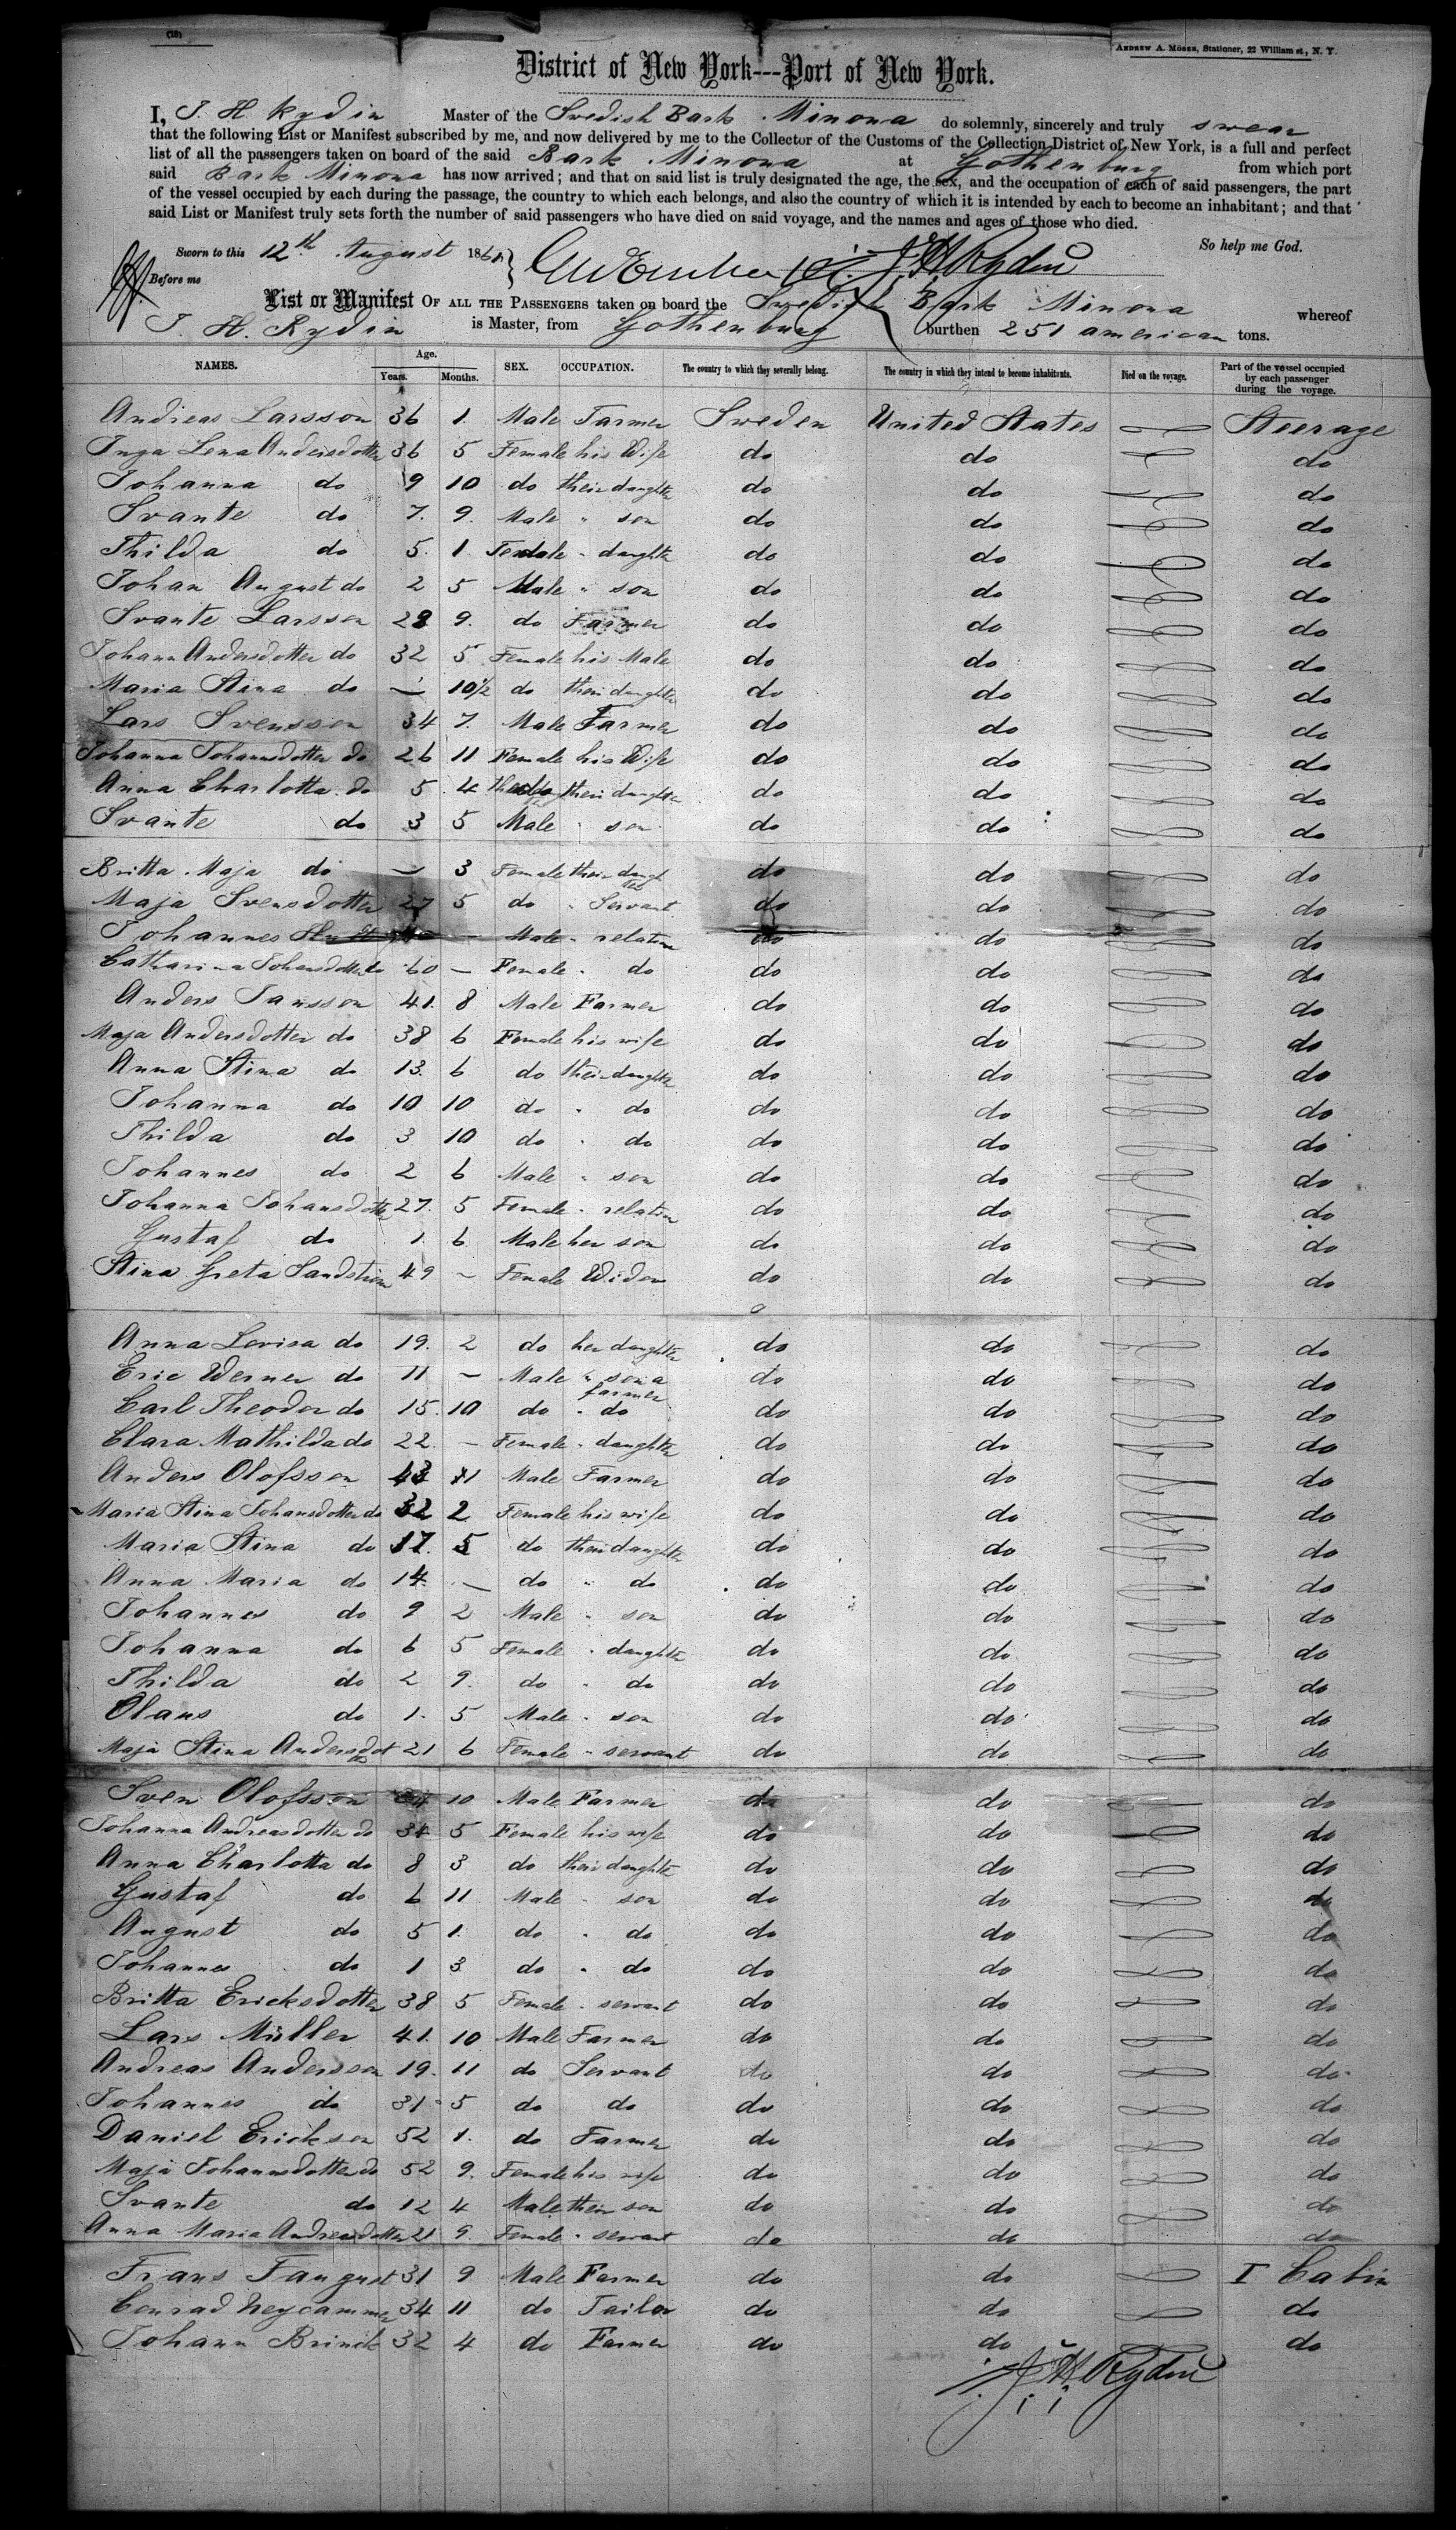 (18)
ANDREW A. MOSES, Stationer, 22 William st, N. Y.
District of New York---Port of New York.
I, J. H. Rydin Master of the Swedish Bark Minona do solemnly, sincerely and truly swear
that the following List or Manifest subscribed by me, and now delivered by me to the Collector of the Customs of the Collection District of New York, is a full and perfect
list of all the passengers taken on board of the said Bark Minona at Gothenburg from which port
said Bark Minona has now arrived; and that on said list is truly designated the age, the sex, and the occupation of each of said passengers, the part
of the vessel occupied by each during the passage, the country to which each belongs, and also the country of which it is intended by each to become an inhabitant; and that
said List or Manifest truly sets forth the number of said passengers who have died on said voyage, and the names and ages of those who died.
So help me God.
Sworn to this 12th August 186
J. H. Rydin
Before me
List or Manifest OF ALL THE PASSENGERS taken on board the Swedish Bark Minona whereof
J. H. Rydin is Master, from Gothenburg burthen 251 american tons.
NAMES. Age. Years. Months. SEX. OCCUPATION. The country to which they severally belong. The country in which they intend to become inhabitants. Died on the voyage. Part of the vessel occupied by each passenger during the voyage.
Andreas Larsson 36 1. Male Farmer Sweden United States Steerage
Inga Lena Andersdotter 36 5 Female his Wife do do do
Johanna do 9 10 do their daughter do do do
Svante do 7. 9. Male " son do do do
Thilda do 5. 1 Female " daughter do do do
Johan August do 2 5 Male " son do do do
Svante Larsson 28 9. do Farmer do do do
Johann Andersdotter do 32 5 Female his Male do do do
Maria Stina do — 10½ do their daughter do do do
Lars Svensson 34 7. Male Farmer do do do
Johanna Johannsdotter do 26 11 Female his Wife do do do
Anna Charlotta do 5 4 their daughter do do do
Svante do 3 5 Male " son do do do
Britta Maja do — 3 Female their daughter do do do
Maja Svensdotter 27 5 do " Servant do do do
Johannes — Male " relation do do do
Catharina Johansdotter do 60 — Female " do do do do
Anders Jansson 41. 8 Male Farmer do do do
Maja Andersdotter do 38 6 Female his wife do do do
Anna Stina do 13. 6 do their daughter do do do
Johanna do 10 10 do " do do do do
Thilda do 3 10 do " do do do do
Johannes do 2 6 Male " son do do do
Johanna Johansdotter 27. 5 Female " relation do do do
Gustaf do 1. 6 Male her son do do do
Stina Greta Sandström 49 — Female Widow do do do
Anna Lovisa do 19. 2 do her daughter do do do
Eric Werner do 11 — Male " son a farmer do do do
Carl Theodor do 15. 10 do " do do do do
Clara Mathilda do 22. — Female " daughter do do do
Anders Olofsson 43 11 Male Farmer do do do
Maria Stina Johansdotter do 32 2 Female his wife do do do
Maria Stina do 17. 5 do their daughter do do do
Anna Maria do 14. — do " do do do do
Johannes do 9 2 Male " son do do do
Johanna do 6 5 Female " daughter do do do
Thilda do 2 9. do " do do do do
Olaus do 1. 5 Male " son do do do
Maja Stina Andersdot 21 6 Female " servant do do do
Sven Olofsson 10 Male Farmer do do do
Johanna Andreasdotter do 34 5 Female his wife do do do
Anna Charlotta do 8 3 do their daughter do do do
Gustaf do 6 11 Male " son do do do
August do 5 1. do " do do do do
Johannes do 1 3 do " do do do do
Britta Ericksdotter 38 5 Female " servant do do do
Lars Müller 41. 10 Male Farmer do do do
Andreas Andersson 19. 11 do Servant do do do
Johannes do 31 5 do do do do do
Daniel Erickson 52 1. do Farmer do do do
Maja Johannsdotter do 52 9. Female his wife do do do
Svante do 12 4 Male their son do do do
Anna Maria Andreasdotter 21 9. Female " servant do do do
Frans Faugust 31 9 Male Farmer do do I Cabin
Conrad Neycammer 34 11 do Tailor do do do
Johann Brinck 32 4 do Farmer do do do
J. H. Rydin